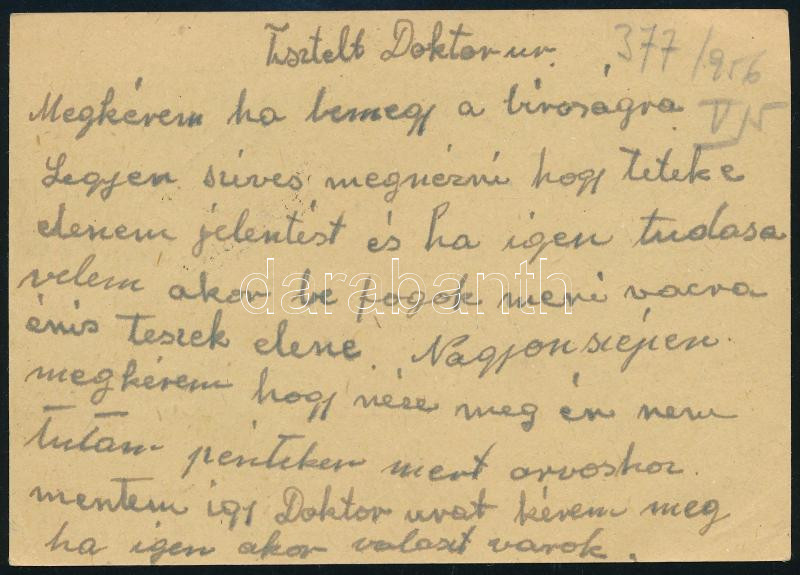 Tisztelt Doktor ur. 377/956
Megkérem ha bemegy a biroságra V/15
Legyen szives megnézni hogy teteke
elenem jelentést és ha igen tudasa
velem akor be fogok meni vacra
énis teszek elene. Nagyon szépen
megkérem hogy néze meg én nem
tutam pénteken mert orvoshoz
mentem igy Doktor urat kérem meg
ha igen akor valaszt varok.
darabanth